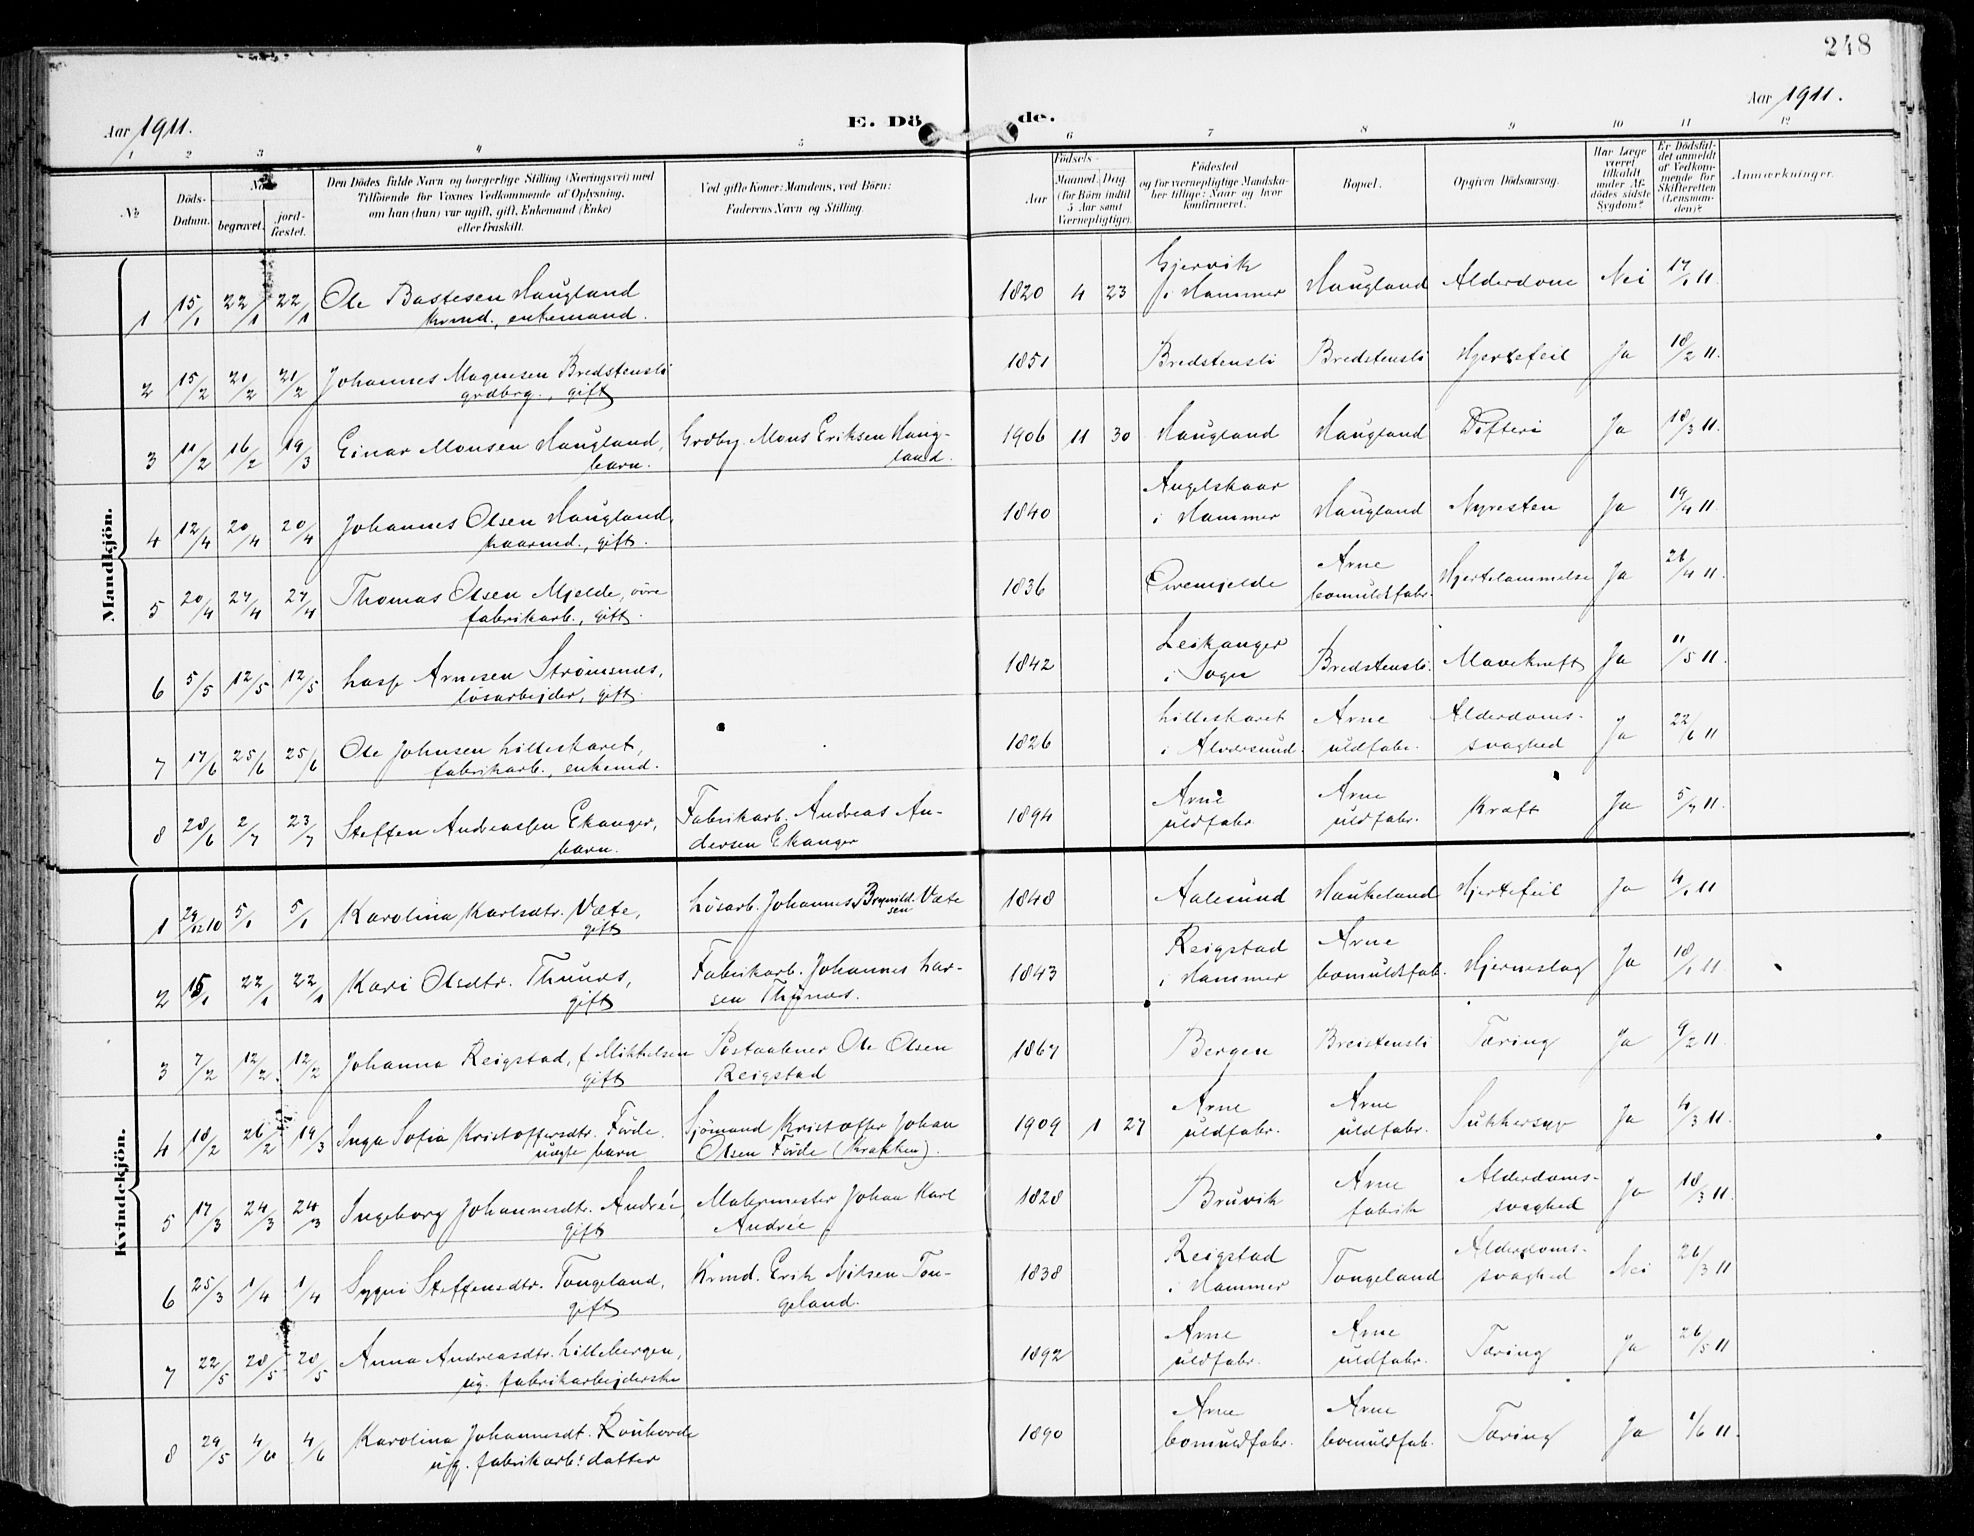 248
Aar 1911.
E. Dö de.
Aar 1911.
1 2 3 4 5 6 7 8 9 10 11 12
No
Döds-Datum.
begravet.
jord-fæstet.
Den Dödes fulde Navn og borgerlige Stilling (Næringsvei) med
Tilföiende for Voxnes Vedkommende af Oplysning,
om han (hun) var ugift, gift, Enkemand (Enke)
eller fraskilt.
Ved gifte Koner: Mandens, ved Börn:
Faderens Navn og Stilling.
Födsels-
Aar
Maaned. Dag
(for Börn indtil
5 Aar samt
Værnepligtige).
Födested
og for værnepligtige Mandska-
ber tillige: Naar og hvor
konfirmeret.
Bopæl.
Opgiven Dödsaarsag.
Har Læge
været
tilkaldt
under Af-
dödes sidste
Sygdom?
Er Dödsfal-
det anmeldt
af Vedkom-
mende for
Skifteretten
(Lensman-
den)?
Anmærkninger.
Mandkjön.
1 15/1 22/1 22/1 Ole Bastesen Haugland
krmd., enkemand.
1820 4 23 Gjervik
i Hammer Haugland Alderdom Nei 17/1 11.
2 15/2 21/2 21/2 Johannes Magnesen Bredstensli
grdbrg., gift
1851 Bredstensli Bredstensli Hjertefeil Ja 18/2 11.
3 11/2 16/2 19/3 Einar Monsen Haugland,
barn.
Grdbg. Mons Eriksen Haug-
land.
1906 11 30 Haugland Haugland Difteri Ja 18/3 11.
4 12/4 20/4 20/4 Johannes Olsen Haugland,
kaarmd., gift.
1840 Angelskaar
i Hammer Haugland Nyresten Ja 19/4 11.
5 20/4 27/4 27/4 Thomas Olsen Mjelde, övre
fabrikarb., gift.
1836 Övremjelde Arne
bomuldsfabr. Hjertelammelse Ja 26/4 11.
6 5/5 12/5 12/5 Lasse Arnesen Strömsnes,
lösarbejder, gift
1842 Leikanger
i Sogn Bredstensli. Mavekræft Ja 11/5 11.
7 17/6 25/6 25/6 Ole Johnsen Lilleskaret,
fabrikarb., enkemd.
1826 Lilleskaret
i Alversund. Arne
uldfabr. Alderdoms-
svaghed Ja 22/6 11
8 28/6 2/7 23/7 Steffen Andreassen Ekanger,
barn.
Fabrikarb. Andreas An-
dersen Ekanger
1894 Arne
uldfabr Arne
uldfabr. Kræft Ja 5/7 11.
Kvindekjön.
1 29/12 10 5/1 5/1 Karolina Karlsdtr. Væte,
gift
Lösarb. Johannes Brynild-
sen Væte
1848 Aalesund Haukeland Hjertefeil Ja 4/1 11
2 15/1 22/1 22/1 Kari Olsdtr. Thunes,
gift
Fabrikarb. Johannes Lar-
sen Thunes.
1843 Reigstad
i Hammer Arne
bomuldsfab. Hjerneslag Ja 18/1 11
3 7/2 12/2 12/2 Johanna Reigstad, f. Mikkelsen
gift
Postaabner Ole Olsen
Reigstad
1867 Bergen Breistensli Tæring Ja 9/2 11.
4 18/2 26/2 19/3 Inga Sofia Kristoffersdtr. Förde.
uægte barn
Sjömand Kristoffer Johan
Olsen Förde (Krakken).
1909 1 27 Arne
uldfabr. Arne
uldfabr. Sukkersyge Ja 4/3 11.
5 17/3 24/3 24/3 Ingeborg Johannesdtr. Andrée,
gift
Malermester Johan Karl
Andrée
1828 Bruvik Arne
fabrik Alderdoms-
svaghed Ja 18/3 11.
6 25/3 1/4 1/4 Sygni Steffensdtr. Tongeland,
gift
Krmd. Erik Nilsen Ton-
geland.
1838 Reigstad
i Hammer Tongeland Alderdoms-
svaghed Nei 26/3 11
7 22/5 28/5 28/5 Anna Andreasdtr. Lillebergen,
ug. fabrikarbejderske
1892 Arne
uldfabr. Arne
uldfabr. Tæring Ja 26/5 11
8 29/5 4/6 4/6 Karolina Johannesdt. Rouhovde
ug. fabrikarb: datter
1890 Arne
bomuldfabr. Arne
bomuldfab. Tæring Ja 1/6 11.